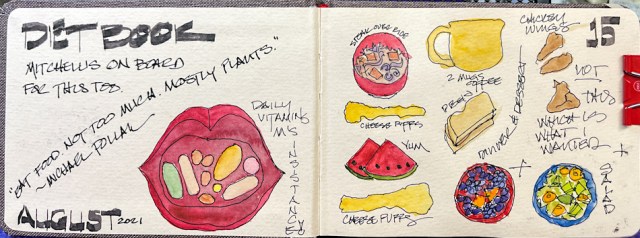 DIET BOOK
MITCHELL IS ON BOARD
FOR THIS TOO.
"EAT FOOD. NOT TOO MUCH. MOSTLY PLANTS."
~ MICHAEL POLLAN
DAILY
VITAMINS
M'S
INSISTANCE
AUGUST 2021
15
STEAK OVER RICE
2 MUGS
COFFEE
CHEESE PUFFS
YUM
CHEESE PUFFS
DINNER & DESSERT
CHICKEN
WINGS
NOT
THIS
WHICH IS
WHAT I
WANTED
+
+
SALAD